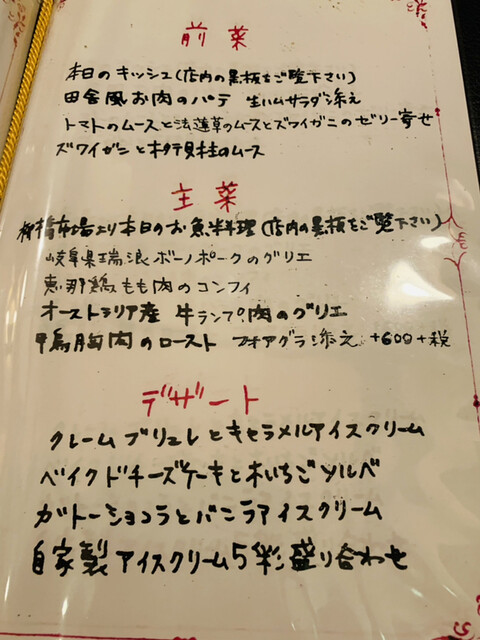 前菜
本日のキッシュ(店内の黒板をご覧下さい)
田舎風お肉のパテ 生ハムサラダ添え
トマトのムースと法蓮草のムースとズワイガニのゼリー寄せ
ズワイガニと帆立貝柱のムース
主菜
柳橋市場より本日のお魚料理(店内の黒板をご覧下さい)
岐阜県瑞浪ボーノポークのグリエ
恵那鶏もも肉のコンフィ
オーストラリア産 牛ランプ肉のグリエ
甲鳥胸肉のロースト フォアグラ添え +600+税
デザート
クレームブリュレとキャラメルアイスクリーム
ベイクドチーズケーキと木いちごソルベ
ガトーショコラとバニラアイスクリーム
自家製アイスクリーム5彩盛り合わせ